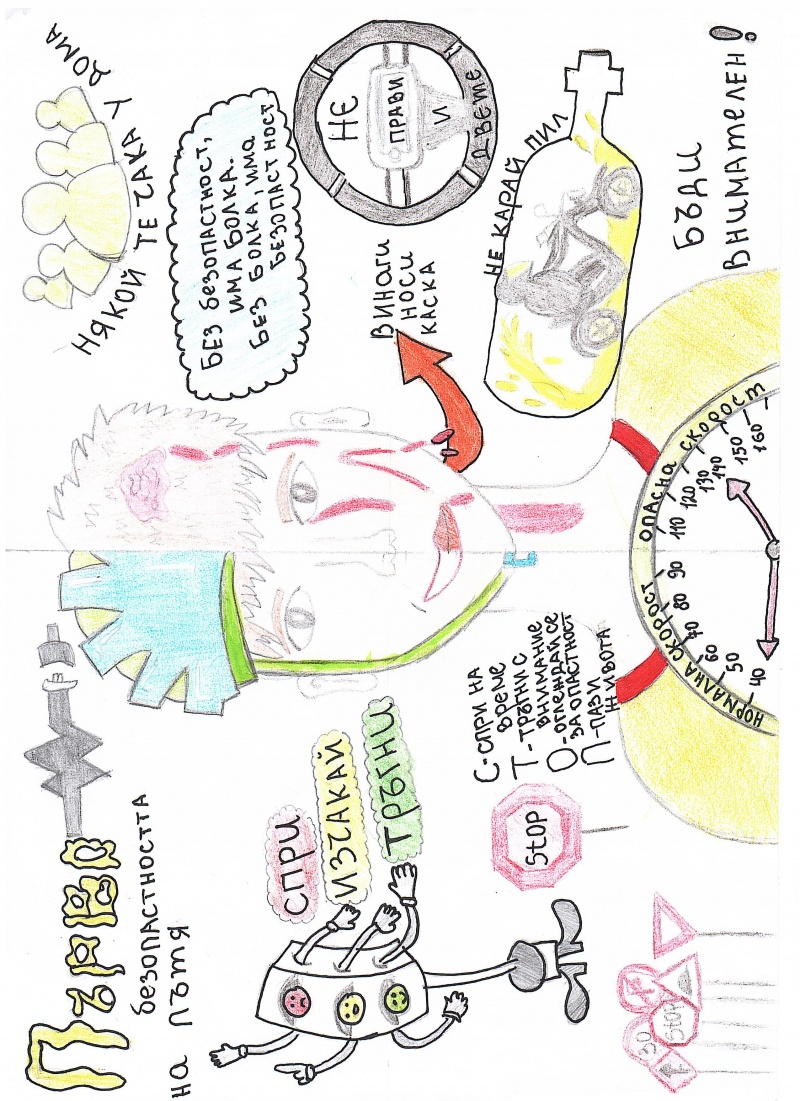 Първо
безопастността
на пътя
СПРИ
ИЗЧАКАЙ
ТРЪГНИ
STOP
С-СПРИ НА
ВРЕМЕ
Т-ТРЪГНИ С
ВНИМАНИЕ
О-ОГЛЕЖДАЙ СЕ
ЗА ОПАСТНОСТ
П-ПАЗИ
ЖИВОТА
30
STOP
НЯКОЙ ТЕ ЧАКА У ДОМА
БЕЗ БЕЗОПАСТНОСТ,
ИМА БОЛКА.
БЕЗ БОЛКА, ИМА
БЕЗОПАСТНОСТ
НЕ
ПРАВИ
И
ДВЕТЕ
ВИНАГИ
НОСИ
КАСКА
НЕ КАРАЙ ПИЛ
БЪДИ
ВНИМАТЕЛЕН!
НОРМАЛНА СКОРОСТ
ОПАСНА СКОРОСТ
40 50 60 70 80 90 110 120 130 140 150 160